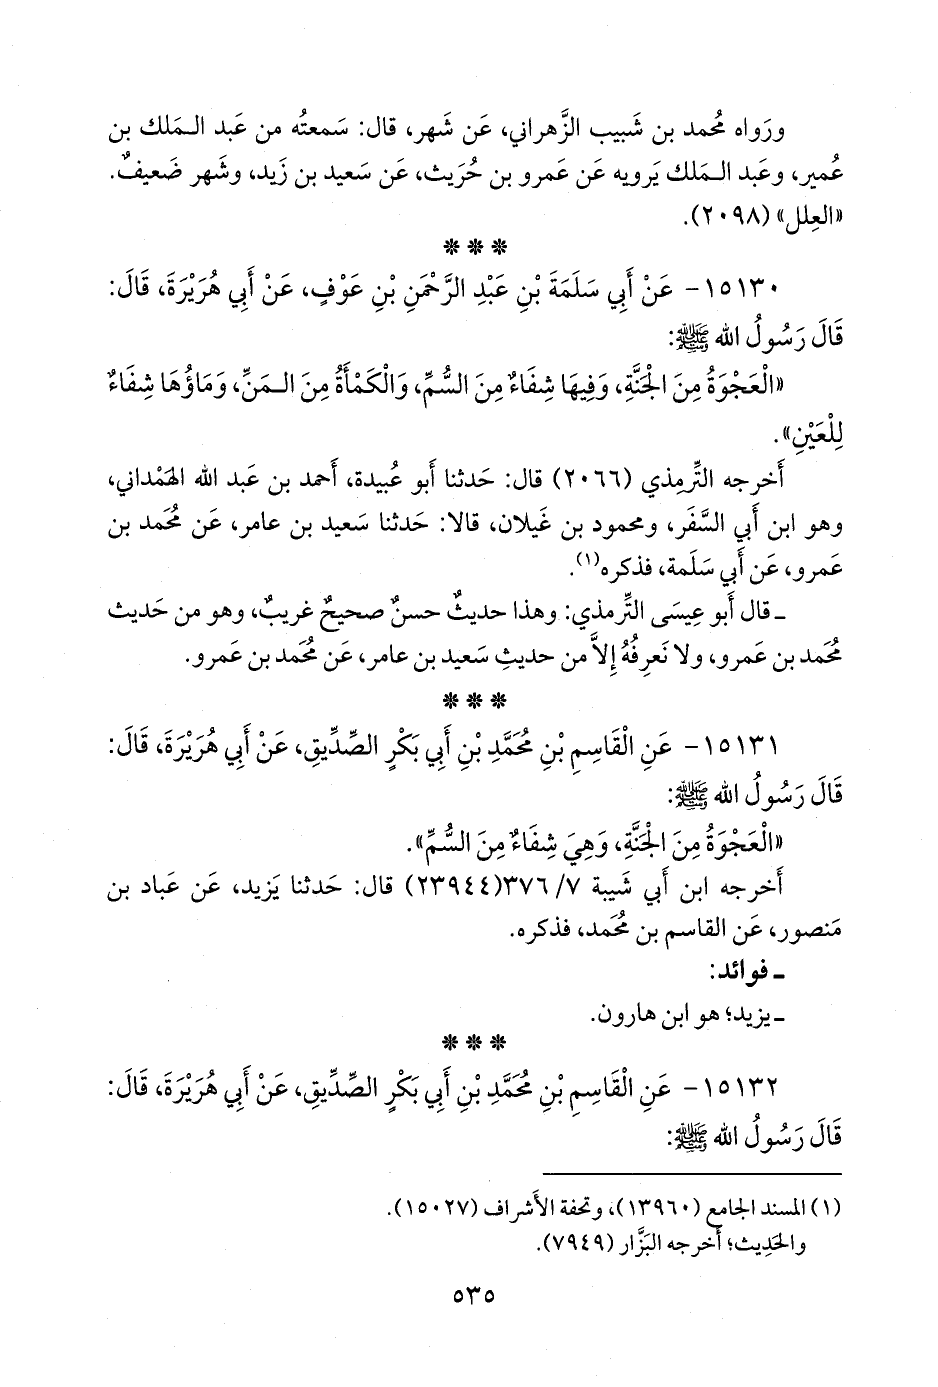 ورَواه مُحمد بن شَبيب الزَّهراني، عَن شَهر، قال: سَمعتُه من عَبد الـمَلك بن
عُمير، وعَبد الـمَلك يَرويه عَن عَمرو بن حُرَيث، عَن سَعيد بن زَيد، وشَهر ضَعيفٌ.
«العِلل» (٢٠٩٨).
* * *
١٥١٣٠- عَنْ أَبِي سَلَمَةَ بْنِ عَبْدِ الرَّحْمَنِ بْنِ عَوْفٍ، عَنْ أَبِي هُرَيْرَةَ، قَالَ:
قَالَ رَسُولُ الله ﷺ:
«الْعَجْوَةُ مِنَ الْجَنَّةِ، وَفِيهَا شِفَاءٌ مِنَ السُّمِّ، وَالْكَمْأَةُ مِنَ الـمَنِّ، وَمَاؤُهَا شِفَاءٌ
لِلْعَيْنِ».
أَخرجه التِّرمِذي (٢٠٦٦) قال: حَدثنا أَبو عُبيدة، أَحمد بن عَبد الله الهَمْداني،
وهو ابن أَبي السَّفَر، ومحمود بن غَيلان، قالا: حَدثنا سَعيد بن عامر، عَن مُحمد بن
عَمرو، عَن أَبي سَلَمة، فذكره(١).
ـ قال أَبو عِيسَى التِّرمذي: وهذا حديثٌ حسنٌ صحيحٌ غريبٌ، وهو من حَديث
مُحمد بن عَمرو، ولا نَعرِفُهُ إِلاَّ من حديثِ سَعيد بن عامر، عَن مُحمد بن عَمرو.
* * *
١٥١٣١- عَنِ الْقَاسِمِ بْنِ مُحَمَّدِ بْنِ أَبِي بَكْرٍ الصِّدِّيقِ، عَنْ أَبِي هُرَيْرَةَ، قَالَ:
قَالَ رَسُولُ الله ﷺ:
«الْعَجْوَةُ مِنَ الْجَنَّةِ، وَهِيَ شِفَاءٌ مِنَ السُّمِّ».
أَخرجه ابن أَبي شَيبة ٧/ ٣٧٦(٢٣٩٤٤) قال: حَدثنا يَزيد، عَن عَباد بن
مَنصور، عَن القاسم بن مُحمد، فذكره.
ـ فوائد:
ـ يزيد؛ هو ابن هارون.
* * *
١٥١٣٢- عَنِ الْقَاسِمِ بْنِ مُحَمَّدِ بْنِ أَبِي بَكْرٍ الصِّدِّيقِ، عَنْ أَبِي هُرَيْرَةَ، قَالَ:
قَالَ رَسُولُ الله ﷺ:
(١) المسند الجامع (١٣٩٦٠)، وتحفة الأَشراف (١٥٠٢٧).
والحَدِيث؛ أَخرجه البَزَّار (٧٩٤٩).
٥٣٥